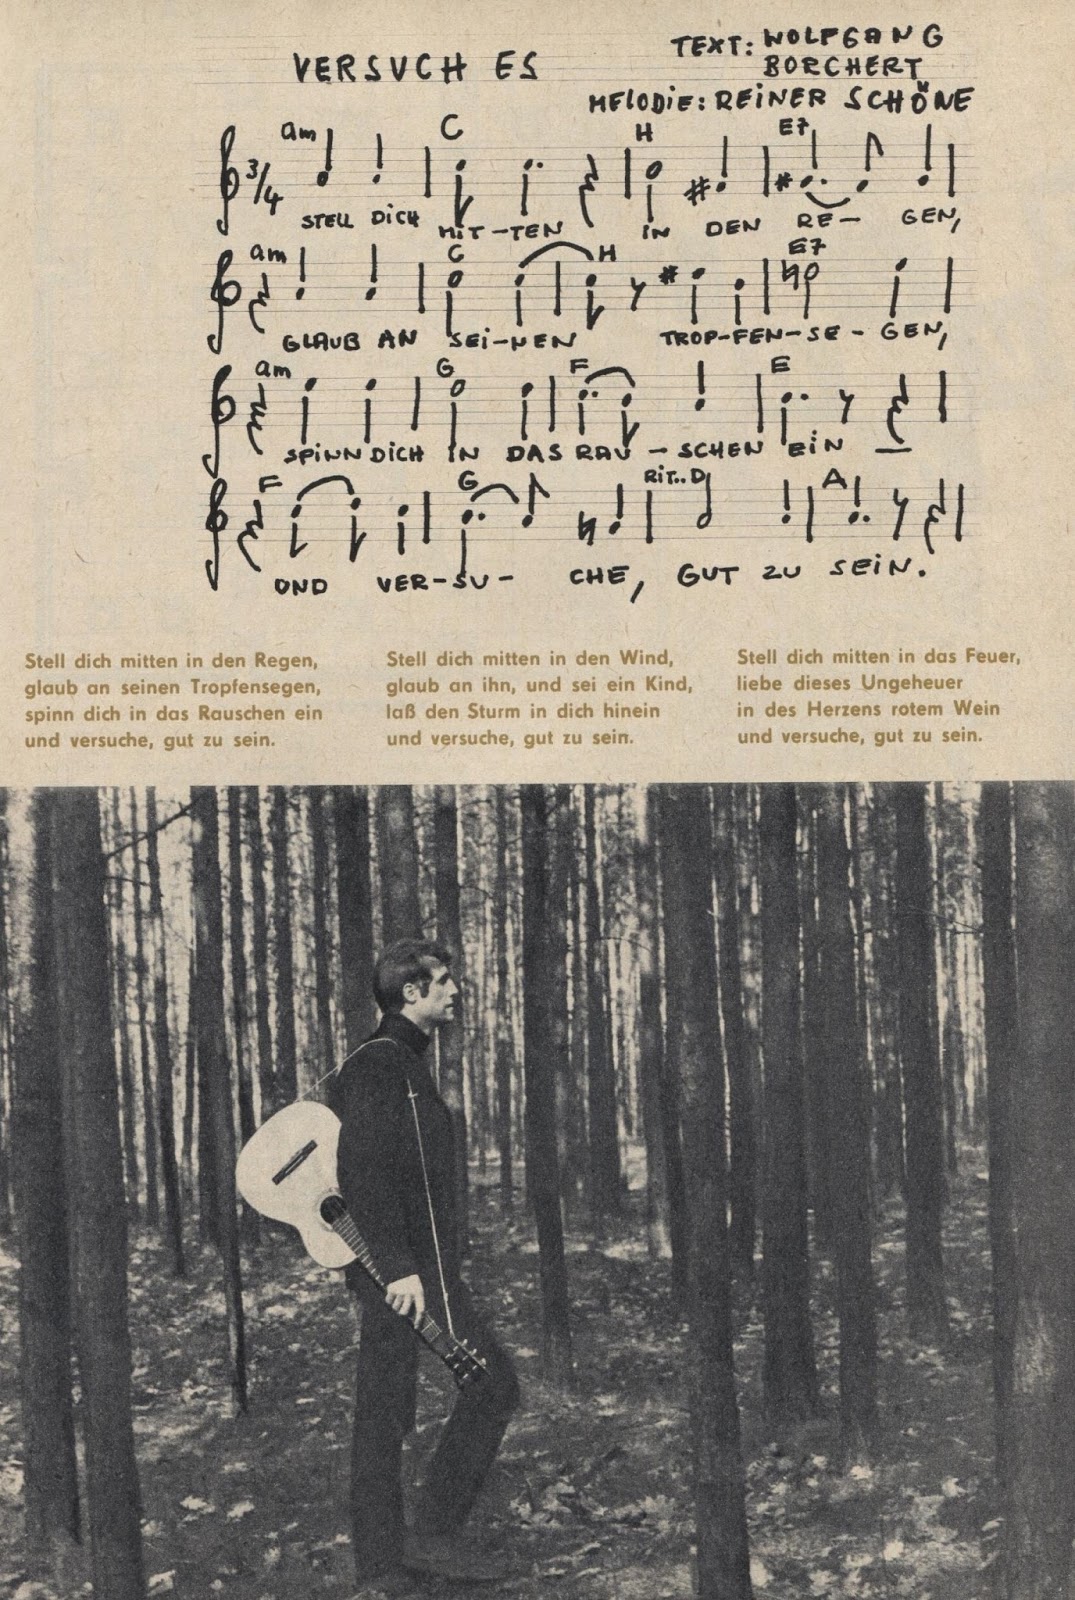 VERSUCH ES
TEXT: WOLFGANG
BORCHERT
MELODIE: REINER SCHÖNE
am C H E7
3/4
STELL DICH MIT-TEN IN DEN RE- GEN,
am C H E7
GLAUB AN SEI-NEN TROP-FEN-SE-GEN,
am G F E
SPINN DICH IN DAS RAU-SCHEN EIN
F G RIT.. D A
UND VER-SU- CHE, GUT ZU SEIN.
Stell dich mitten in den Regen,
glaub an seinen Tropfensegen,
spinn dich in das Rauschen ein
und versuche, gut zu sein.
Stell dich mitten in den Wind,
glaub an ihn, und sei ein Kind,
laß den Sturm in dich hinein
und versuche, gut zu sein.
Stell dich mitten in das Feuer,
liebe dieses Ungeheuer
in des Herzens rotem Wein
und versuche, gut zu sein.